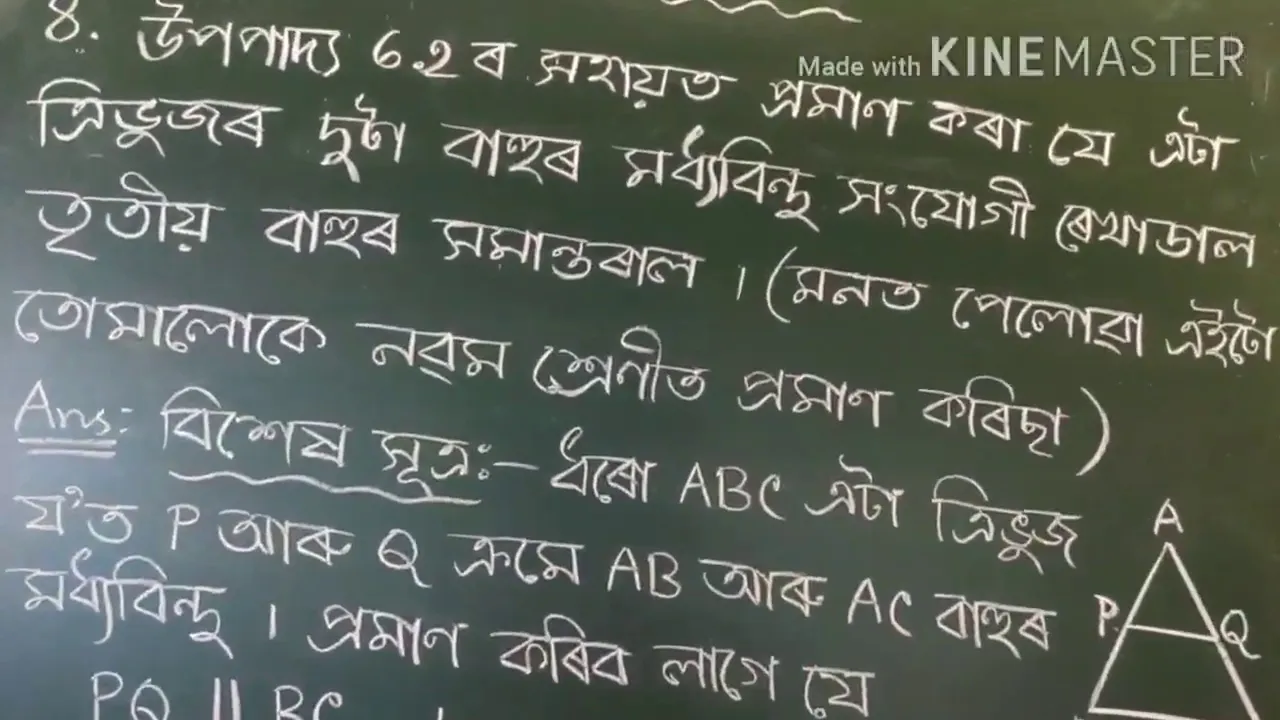 Made with KINEMASTER
8. উপপাদ্য 6.2 ৰ সহায়ত প্ৰমাণ কৰা যে এটা
ত্ৰিভুজৰ দুটা বাহুৰ মধ্যবিন্দু সংযোগী ৰেখাডাল
তৃতীয় বাহুৰ সমান্তৰাল । (মনত পেলোৱা এইটো
তোমালোকে নৱম শ্ৰেণীত প্ৰমাণ কৰিছা)
Ans: বিশেষ সূত্ৰ:- ধৰো ABC এটা ত্ৰিভুজ
য'ত P আৰু Q ক্ৰমে AB আৰু AC বাহুৰ
মধ্যবিন্দু । প্ৰমাণ কৰিব লাগে যে
PQ || BC ।
A
P Q